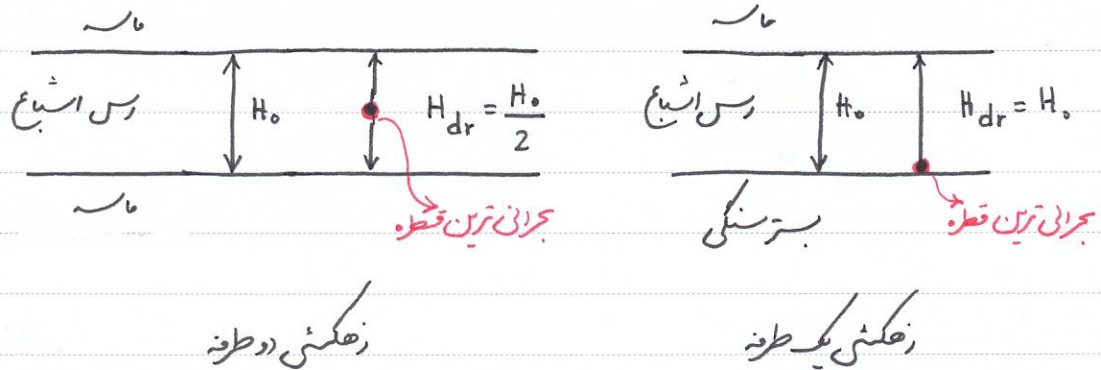 ماسه
رس اشباع
H₀
H_dr = H₀/2
ماسه
بحرانی ترین قطره
زهکشی دو طرفه
ماسه
رس اشباع
H₀
H_dr = H₀
بستر سنگی
بحرانی ترین قطره
زهکشی یک طرفه